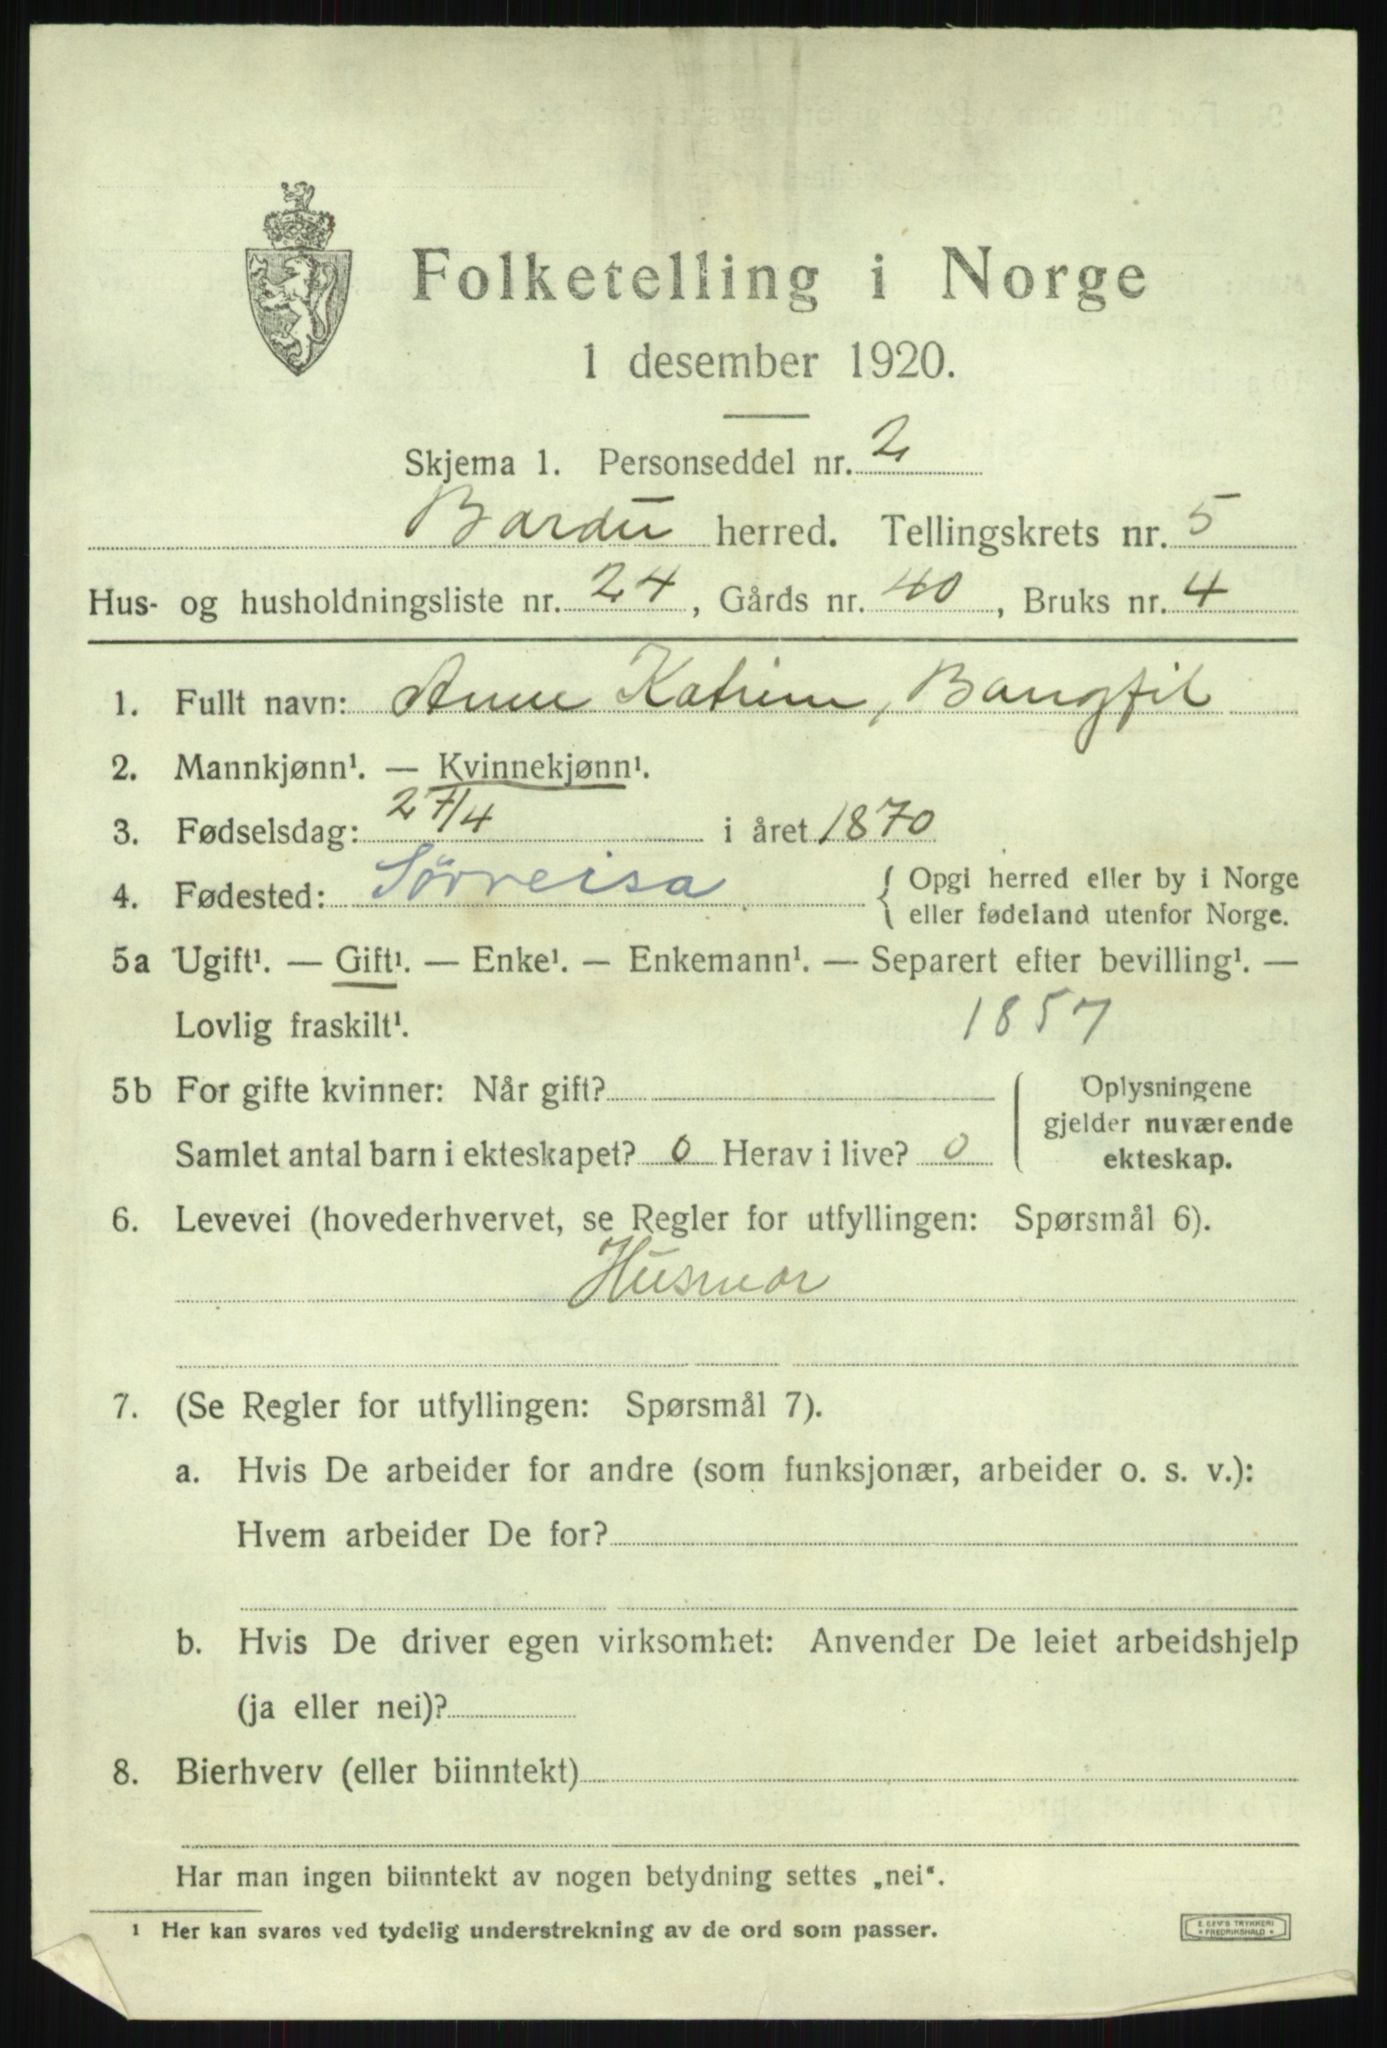 Folketelling i Norge
1 desember 1920.
Skjema 1. Personseddel nr. 2
Bardu herred. Tellingskrets nr. 5
Hus- og husholdningsliste nr. 24, Gårds nr. 40, Bruks nr. 4
1. Fullt navn: Anne Katrine,
2. Mannkjønn¹. — Kvinnekjønn¹.
3. Fødselsdag: 27/4 i året 1870
4. Fødested: Sørreisa { Opgi herred eller by i Norge
eller fødeland utenfor Norge.
5a Ugift¹. — Gift¹. — Enke¹. — Enkemann¹. — Separert efter bevilling¹. —
Lovlig fraskilt¹. 1857
5b For gifte kvinner: Når gift?
Samlet antal barn i ekteskapet? 0 Herav i live? 0
Oplysningene
gjelder nuværende
ekteskap.
6. Levevei (hovederhvervet, se Regler for utfyllingen: Spørsmål 6).
Husmor
7. (Se Regler for utfyllingen: Spørsmål 7).
a. Hvis De arbeider for andre (som funksjonær, arbeider o. s. v.):
Hvem arbeider De for?
b. Hvis De driver egen virksomhet: Anvender De leiet arbeidshjelp
(ja eller nei)?
8. Bierhverv (eller biinntekt)
Har man ingen biinntekt av nogen betydning settes „nei“.
¹ Her kan svares ved tydelig understrekning av de ord som passer.
E. SEV'S TRYKKERI
FREDRIKSHALD